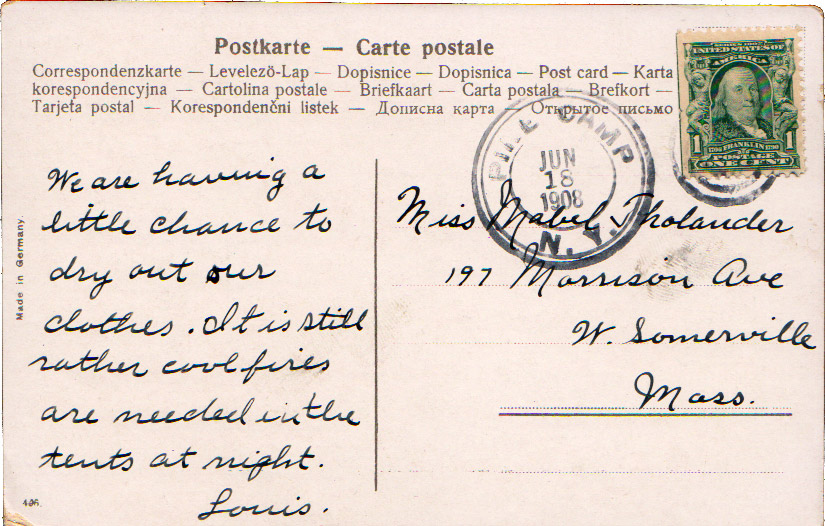 Postkarte — Carte postale
Correspondenzkarte — Levelező-Lap — Dopisnice — Dopisnica — Post card — Karta
korespondencyjna — Cartolina postale — Briefkaart — Carta postala — Brefkort —
Tarjeta postal — Korespondenčni listek — Дописна карта — Открытое письмо
SERIES 1902
UNITED STATES OF
AMERICA
1 1
1706 FRANKLIN 1790
POSTAGE
ONE CENT
CAMP
JUN
18
1908
N. Y.
We are having a
little chance to
dry out our
clothes. It is still
rather cool fires
are needed in the
tents at night.
Louis.
Miss Mabel Tholander
197 Morrison Ave
W. Somerville
Mass.
Made in Germany.